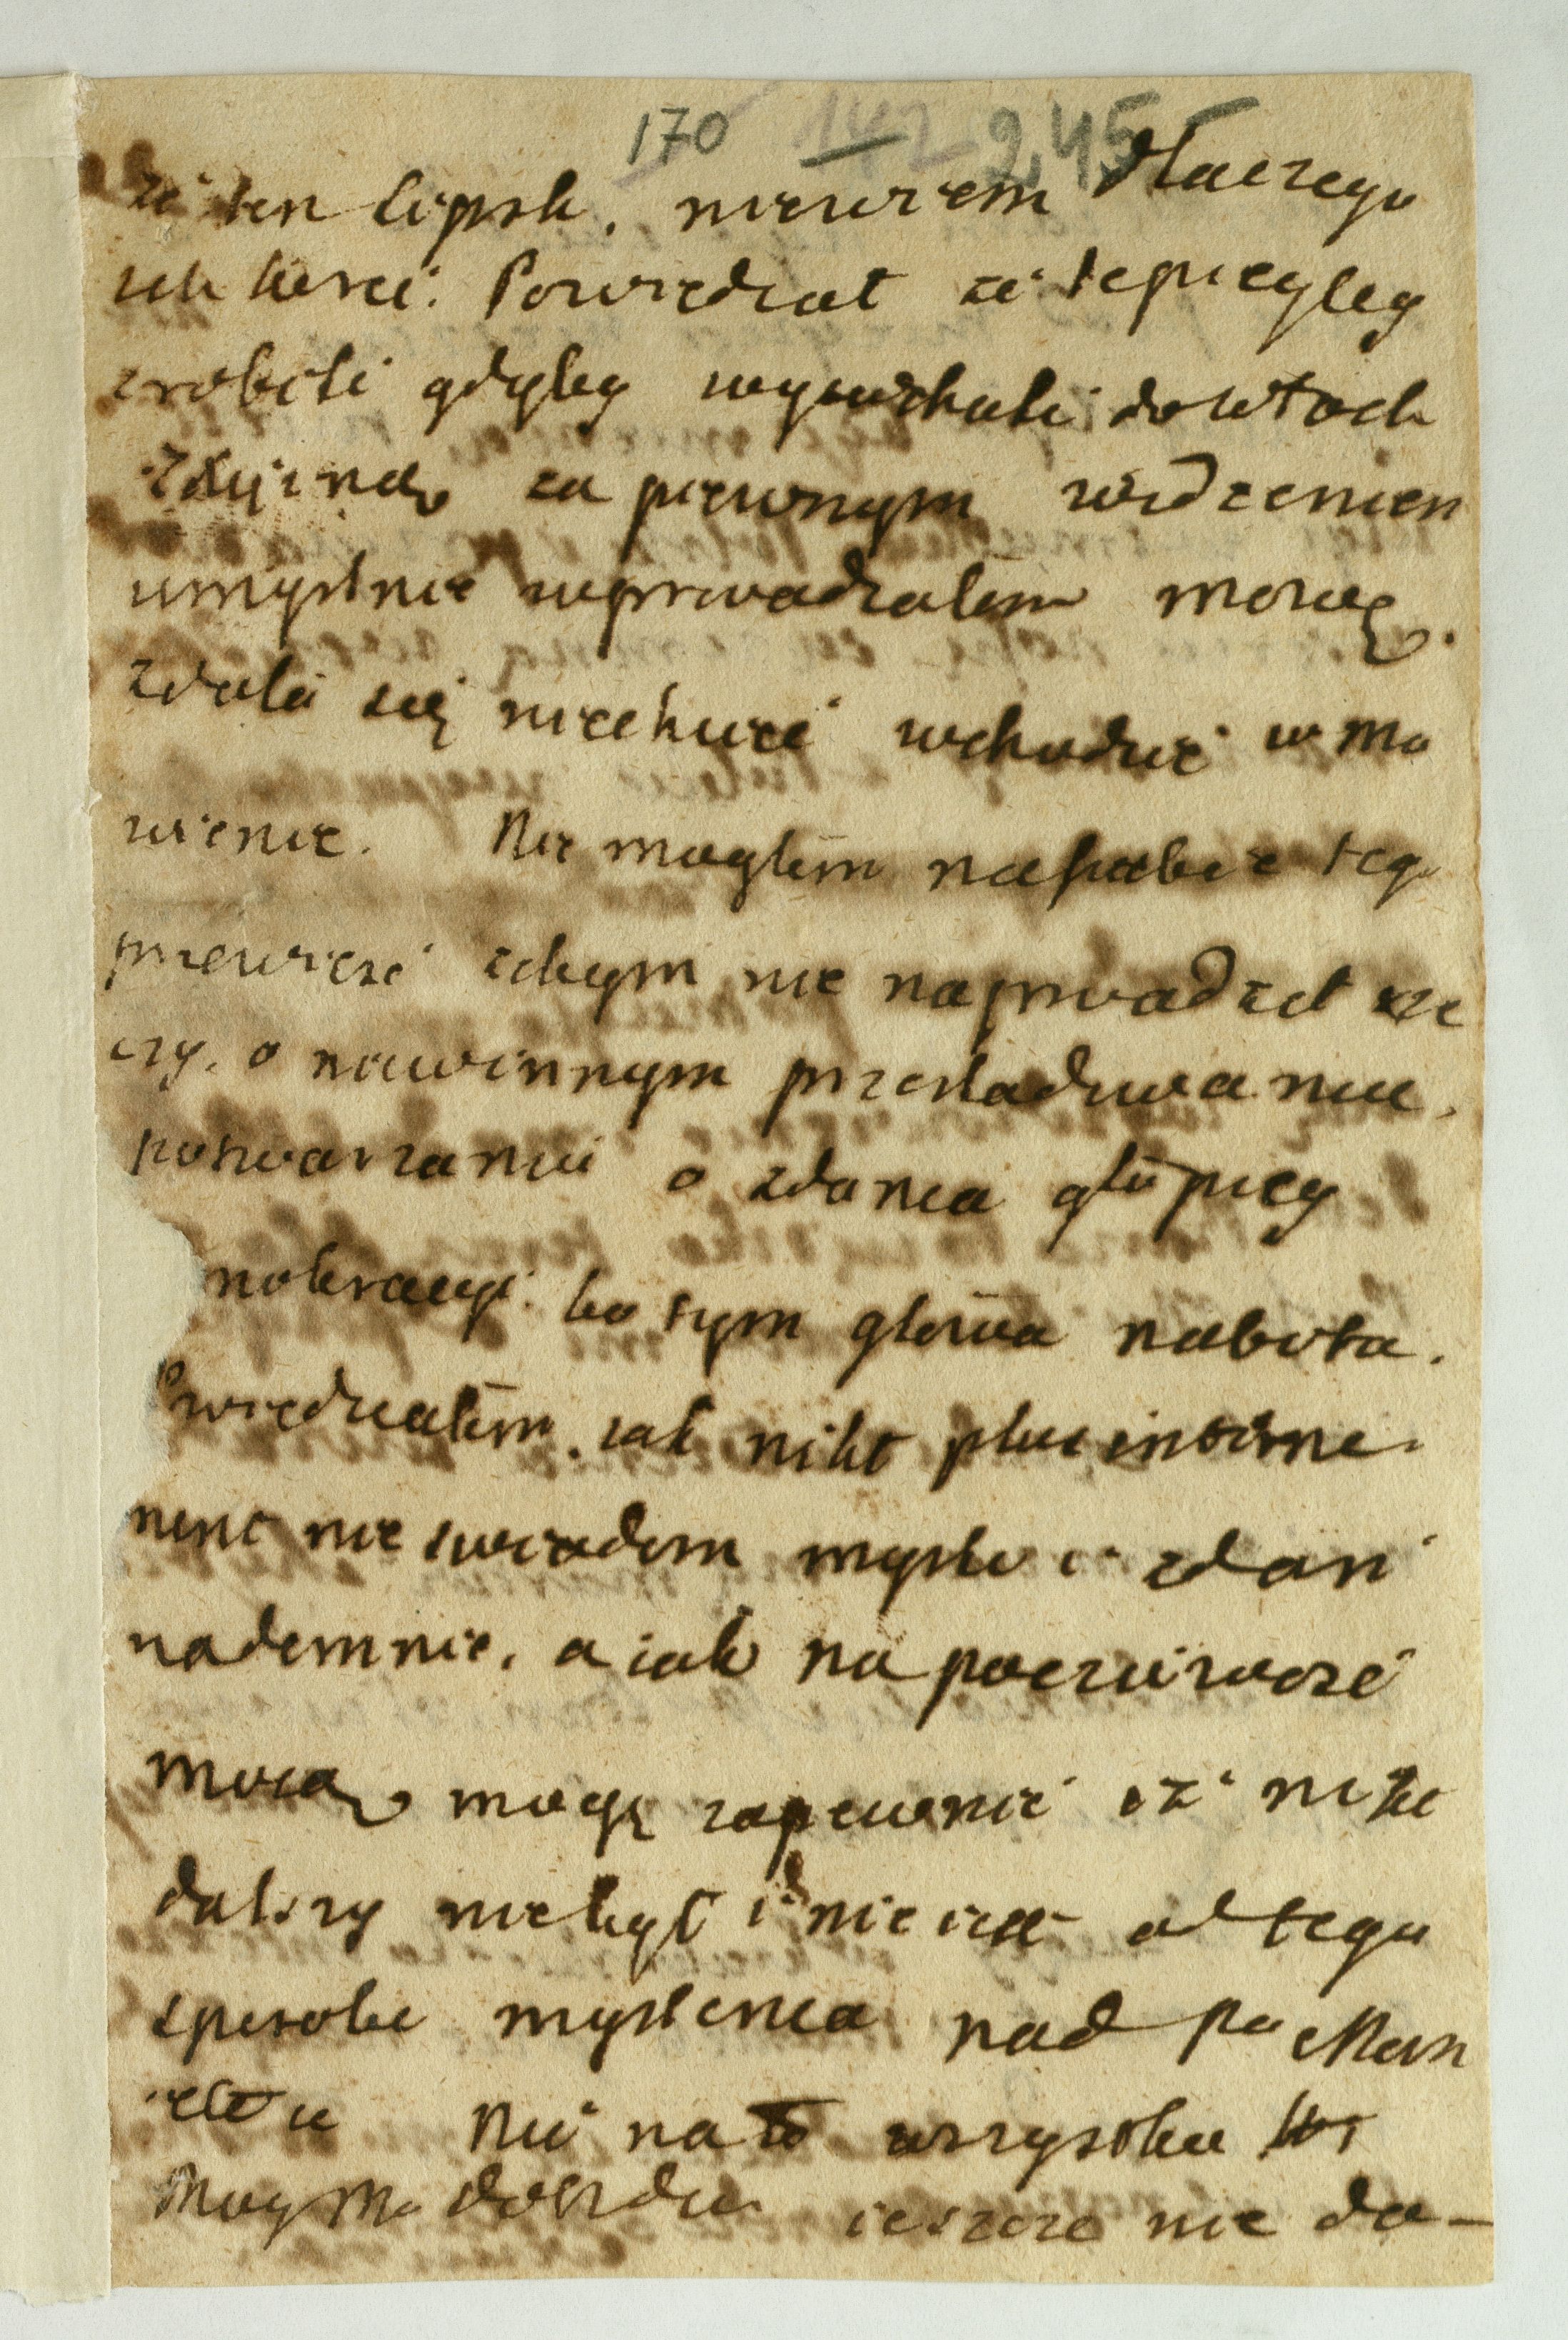 170 142 245
że ten lipsk, niewiem dlaczego
ich lirsci. Powiedział że lepieyby
zrobili gdyby wyiechali do włoch
za pierwnym widzenien
umyslnie wprowadzałem mowę.
zdali się niechcieć wchodzić w mo
wienie. Nie moglem na sobie tego
przewieść żebym nie naprowadził rze
czy. o niewinnym prześladowaniu,
potwarzaniu o zdania głupiey
mokracyi. bo tym głowa nabita.
Powiedziałem. iak nikt plus intime
ment nie swiadom mysli i zdań
nademnie, a iak na poczciwość
moią mogę zapewnić iż nikt
dalszy niebył i nie iest od tego
sposobu myslenia nad pa Man
Nic na to wszystko
Moy Mo dobrdzu ieszcze nie do-